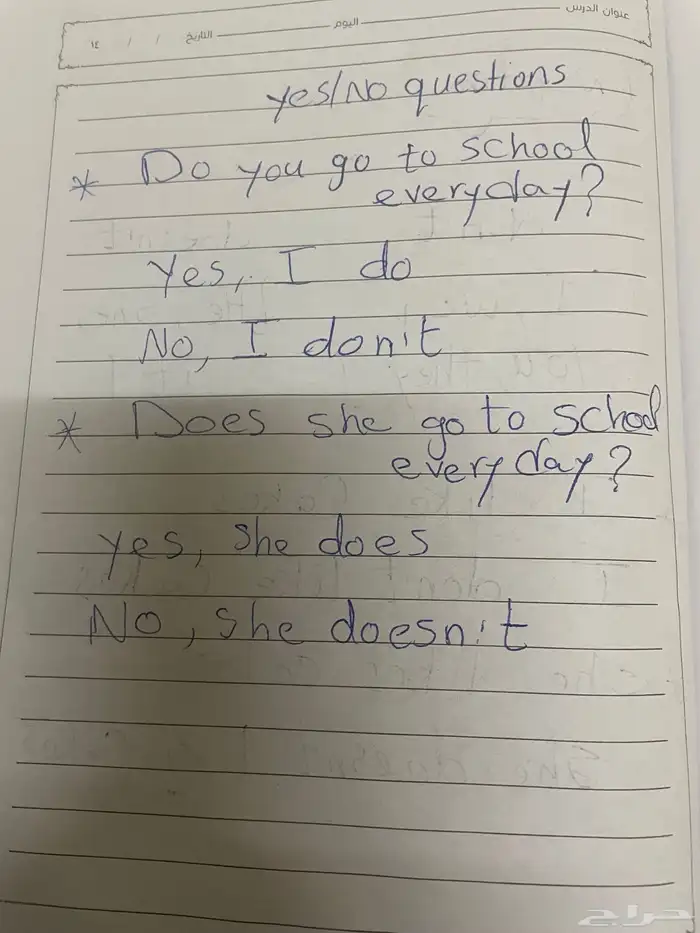 عنوان الدرس
اليوم
التاريخ / / ١٤
yes/No questions
* Do you go to school
everyday?
Yes, I do
No, I don't
* Does she go to school
every day?
yes, she does
No, she doesn't
حراج